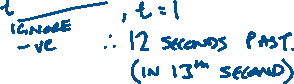 t , t = 1
IGNORE
-ve ∴ 12 SECONDS PAST.
(IN 13th SECOND)